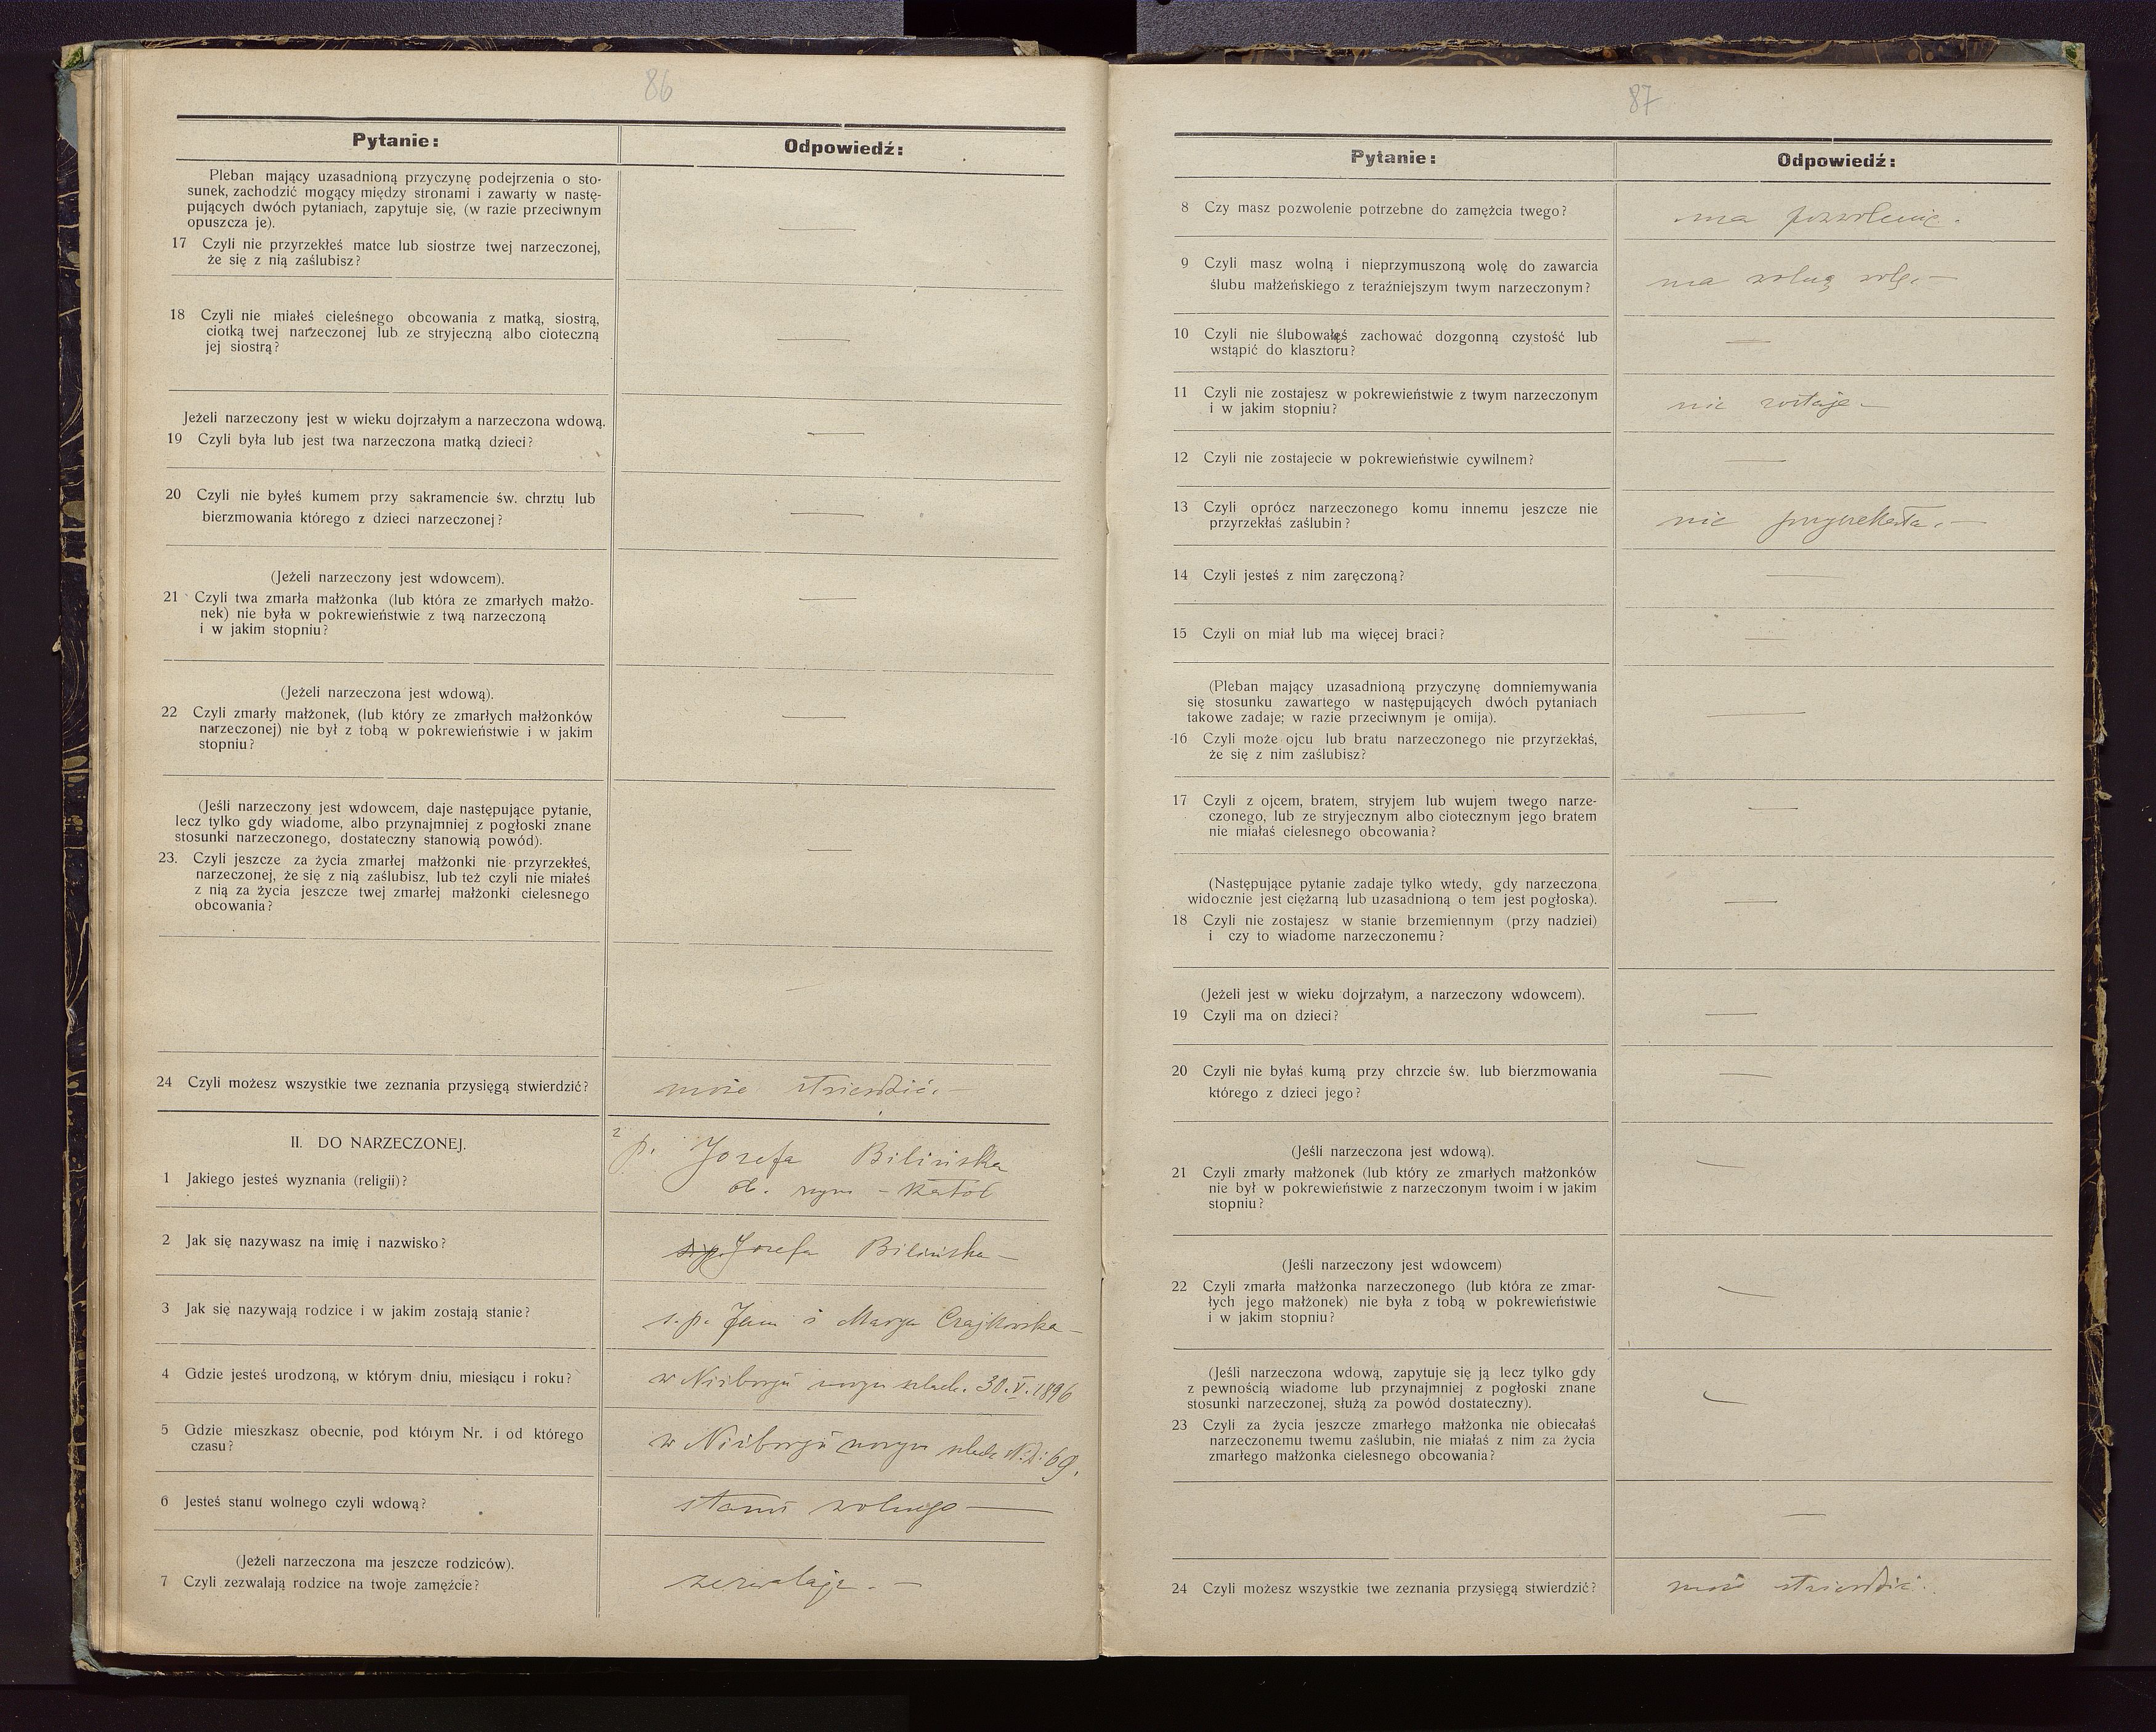 86
Pytanie:
Odpowiedź:
Pleban mający uzasadnioną przyczynę podejrzenia o sto-
sunek, zachodzić mogący między stronami i zawarty w nastę-
pujących dwóch pytaniach, zapytuje się, (w razie przeciwnym
opuszcza je).
17 Czyli nie przyrzekłeś matce lub siostrze twej narzeczonej,
że się z nią zaślubisz?
18 Czyli nie miałeś cieleśnego obcowania z matką, siostrą,
ciotką twej narzeczonej lub ze stryjeczną albo cioteczną
jej siostrą?
Jeżeli narzeczony jest w wieku dojrzałym a narzeczona wdową.
19 Czyli była lub jest twa narzeczona matką dzieci?
20 Czyli nie byłeś kumem przy sakramencie św. chrztu lub
bierzmowania którego z dzieci narzeczonej?
(Jeżeli narzeczony jest wdowcem).
21 Czyli twa zmarła małżonka (lub która ze zmarłych małżo-
nek) nie była w pokrewieństwie z twą narzeczoną
i w jakim stopniu?
(Jeżeli narzeczona jest wdową).
22 Czyli zmarły małżonek, (lub który ze zmarłych małżonków
narzeczonej) nie był z tobą w pokrewieństwie i w jakim
stopniu?
(Jeśli narzeczony jest wdowcem, daje następujące pytanie,
lecz tylko gdy wiadome, albo przynajmniej z pogłoski znane
stosunki narzeczonego, dostateczny stanowią powód).
23. Czyli jeszcze za życia zmarłej małżonki nie przyrzekłeś,
narzeczonej, że się z nią zaślubisz, lub też czyli nie miałeś
z nią za życia jeszcze twej zmarłej małżonki cielesnego
obcowania?
24 Czyli możesz wszystkie twe zeznania przysięgą stwierdzić?
może stwierdzić.
II. DO NARZECZONEJ.
2 p. Jozefa Bilińska
1 Jakiego jesteś wyznania (religii)?
ob. rzym - katol
2 Jak się nazywasz na imię i nazwisko?
Jozefa Bilińska
3 Jak się nazywają rodzice i w jakim zostają stanie?
s. p. Jan i Marya Czajkowska
4 Gdzie jesteś urodzoną, w którym dniu, miesiącu i roku?
w Niżborgu szlach. 30.V.1896
5 Gdzie mieszkasz obecnie, pod którym Nr. i od którego
czasu?
w Niżborgu 69.
6 Jesteś stanu wolnego czyli wdową?
stanu wolnego
(Jeżeli narzeczona ma jeszcze rodziców).
7 Czyli zezwalają rodzice na twoje zamęźcie?
zezwalaja.
87
Pytanie:
Odpowiedź:
8 Czy masz pozwolenie potrzebne do zamężcia twego?
ma pozwolenie.
9 Czyli masz wolną i nieprzymuszoną wolę do zawarcia
ślubu małżeńskiego z teraźniejszym twym narzeczonym?
ma wolną wolę.
10 Czyli nie ślubowałeś zachować dozgonną czystość lub
wstąpić do klasztoru?
11 Czyli nie zostajesz w pokrewieństwie z twym narzeczonym
i w jakim stopniu?
nie zostaje
12 Czyli nie zostajecie w pokrewieństwie cywilnem?
13 Czyli oprócz narzeczonego komu innemu jeszcze nie
przyrzekłaś zaślubin?
nie przyrzekała.
14 Czyli jesteś z nim zaręczoną?
15 Czyli on miał lub ma więcej braci?
(Pleban mający uzasadnioną przyczynę domniemywania
się stosunku zawartego w następujących dwóch pytaniach
takowe zadaje; w razie przeciwnym je omija).
16 Czyli może ojcu lub bratu narzeczonego nie przyrzekłaś,
że się z nim zaślubisz?
17 Czyli z ojcem, bratem, stryjem lub wujem twego narze-
czonego, lub ze stryjecznym albo ciotecznym jego bratem
nie miałaś cielesnego obcowania?
(Następujące pytanie zadaje tylko wtedy, gdy narzeczona
widocznie jest ciężarną lub uzasadnioną o tem jest pogłoska).
18 Czyli nie zostajesz w stanie brzemiennym (przy nadziei)
i czy to wiadome narzeczonemu?
(Jeżeli jest w wieku dojrzałym, a narzeczony wdowcem).
19 Czyli ma on dzieci?
20 Czyli nie byłaś kumą przy chrzcie św. lub bierzmowania
którego z dzieci jego?
(Jeśli narzeczona jest wdową).
21 Czyli zmarły małżonek (lub który ze zmarłych małżonków
nie był w pokrewieństwie z narzeczonym twoim i w jakim
stopniu?
(Jeśli narzeczony jest wdowcem)
22 Czyli zmarła małżonka narzeczonego (lub która ze zmar-
łych jego małżonek) nie była z tobą w pokrewieństwie
i w jakim stopniu?
(Jeśli narzeczona wdową, zapytuje się ją lecz tylko gdy
z pewnością wiadome lub przynajmniej z pogłoski znane
stosunki narzeczonej, służą za powód dostateczny).
23 Czyli za życia jeszcze zmarłego małżonka nie obiecałaś
narzeczonemu twemu zaślubin, nie miałaś z nim za życia
zmarłego małżonka cielesnego obcowania?
24 Czyli możesz wszystkie twe zeznania przysięgą stwierdzić?
może stwierdzić.